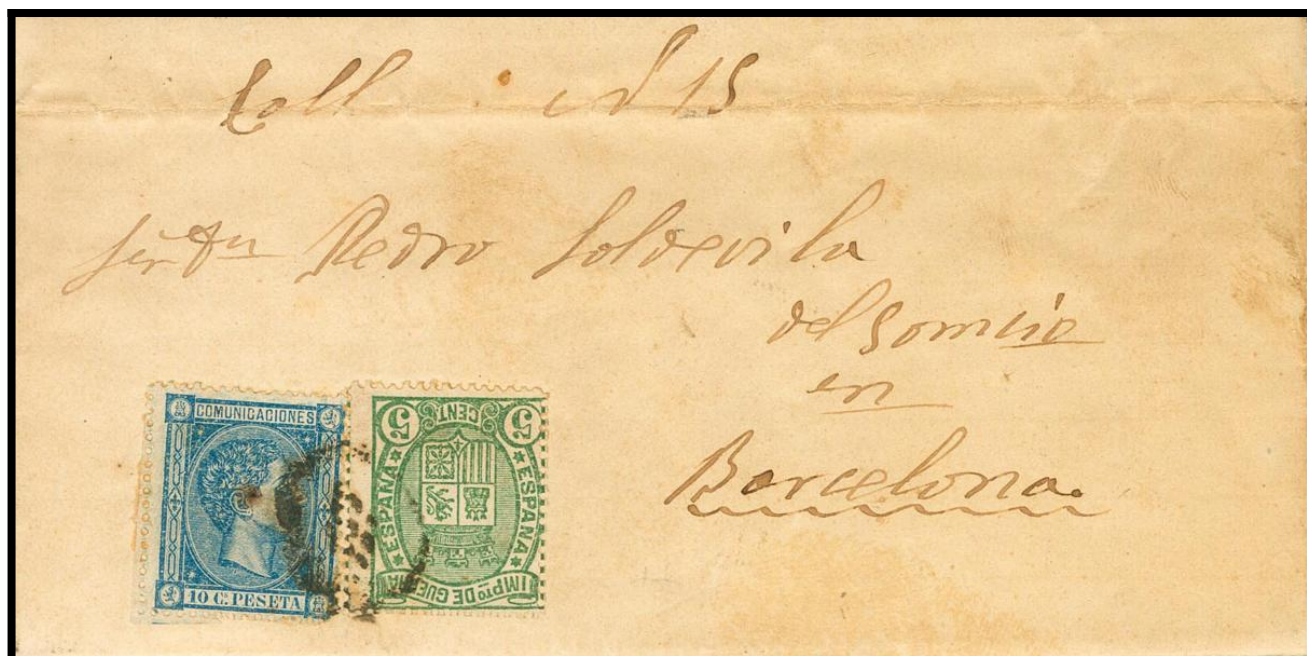 Coll n 15
Sr Dn Pedro Soldevila
del Comcio
en
Barcelona
COMUNICACIONES
10 C. PESETA
5 CENT. 5
ESPAÑA
ESPAÑA
IMPto DE GUERRA